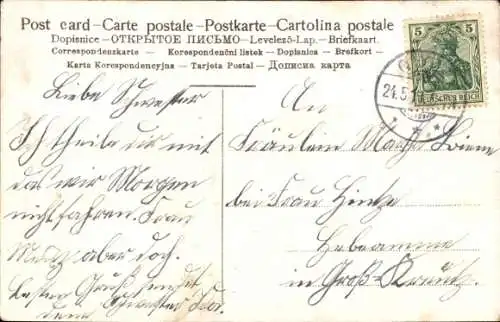 Post card – Carte postale – Postkarte – Cartolina postale
Dopisnice – ОТКРЫТОЕ ПИСЬМО – Levelező-Lap. – Briefkaart.
Correspondenzkarte – Korespondenční listek – Dopisnica – Brefkort –
Karta Korespondencyjna – Tarjeta Postal – Дописна карта
5 5
DEUTSCHES REICH
24.5.
Liebe Schwester
Ich theile dir mit
das wir Morgen
nicht fahren. Frau
aber doch.
Besten Gruß sendet
dein Schwester
An
Fräulein
bei Frau Hintze
Hebeamme
in Groß-Kreutz